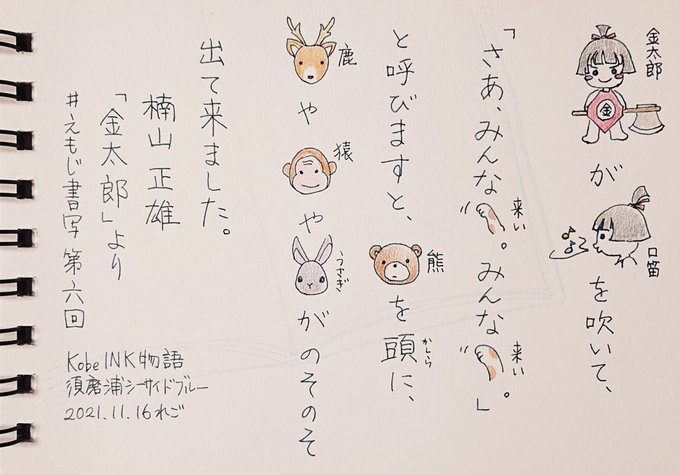 金太郎
金
が
口笛
を吹いて、
「さあ、みんな
来い
。みんな
来い
。」
と呼びますと、
熊
を頭に、
かしら
鹿
や
猿
や
うさぎ
がのそのそ
出て来ました。
楠山正雄
「金太郎」より
#えもじ書写第六回
Kobe INK物語
須磨浦シーサイドブルー
2021.11.16 れご